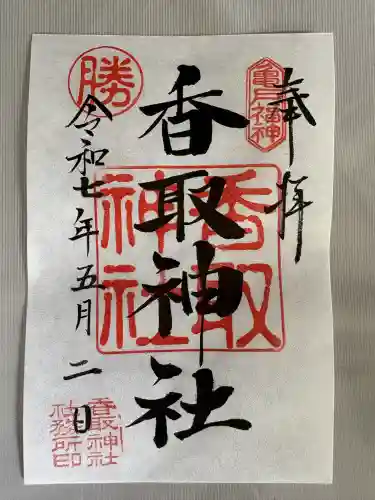 奉拝
亀戸福神
香取神社
香取神社
勝
令和七年五月二日
香取神社
社務所印